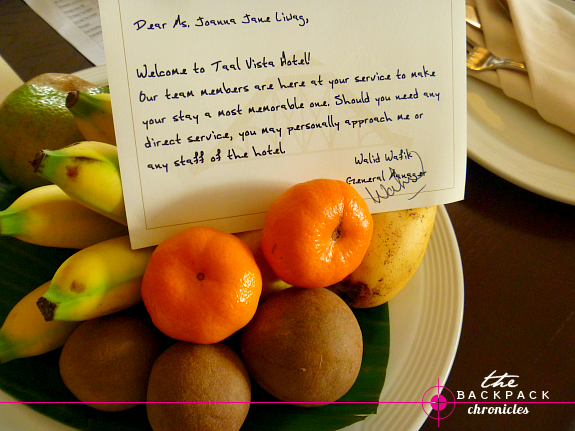 Dear Ms. Joanna Jane Liwag,
Welcome to Taal Vista Hotel!
Our team members are here at your service to make
your stay a most memorable one. Should you need any
direct service, you may personally approach me or
any staff of the hotel
Walid Wafik
General Manager
the
BACKPACK
chronicles